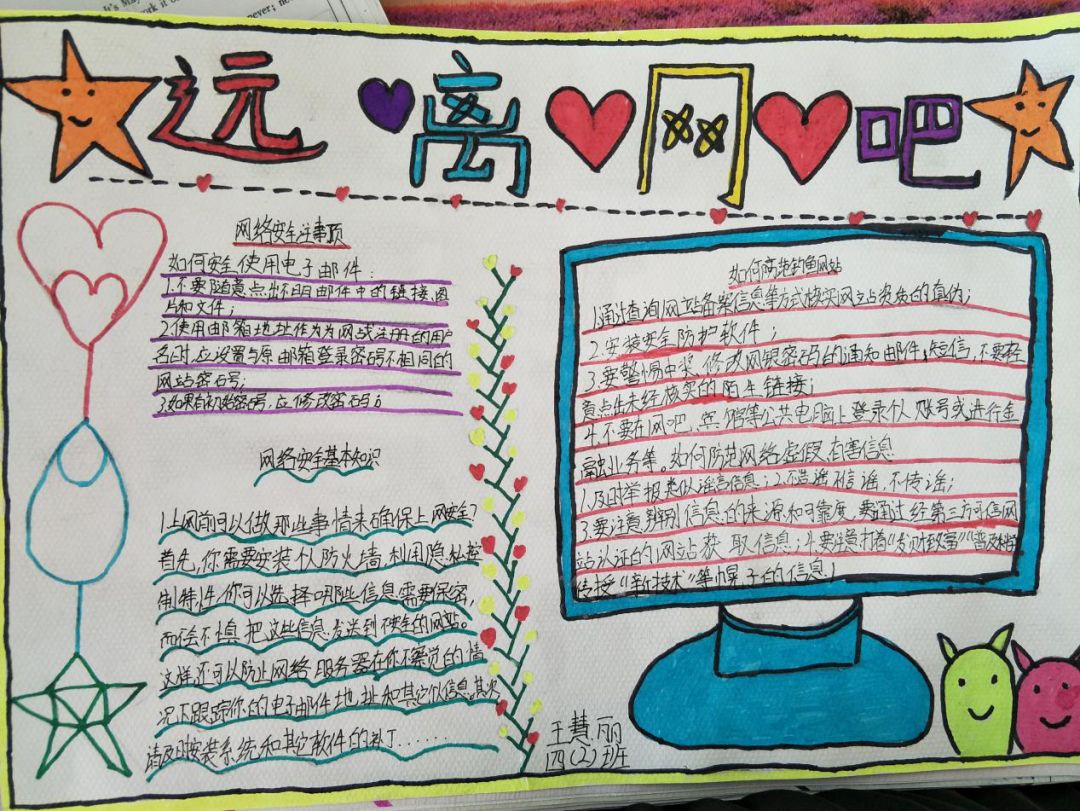 It's Ma
work it o
never; no
远离网吧
网络安全注事项
如何安全使用电子邮件：
1.不要随意点出不明邮件中的链接、图
片和文件；
2.使用邮箱地址作为为网战注册的用户
名时，应设置与原邮箱登录密码不相同的
网站密码；
3.如果有初始密码，应修改密码；
网络安全基本知识
1.上网前可以做那些事情来确保上网安全？
首先，你需要安装个防火墙，利用隐私控
制特性，你可以选择哪些信息需要保密，
而不会不慎把这些信息发送到不安全的网站。
这样还可以防止网络服务器在你不察觉的情
况下跟踪你的电子邮件地址和其它个信息。其次
请及时安装系统和其它软件的补丁......
如何防范钓鱼网站
1.通过查询网站备案信息等方式核实网站资质的真伪；
2.安装安全防护软件；
3.要警惕中奖、修改网银密码的通知邮件、短信，不要轻
意点击未经核实的陌生链接；
4.不要在网吧，宾馆等公共电脑上登录个人账号或进行金
融业务等。如何防范网络虚假、有害信息
1.及时举报类似谣言信息；2.不造谣，不信谣，不传谣；
3.要注意辨别信息的来源和可靠度，要通过经第三方可信网
站认证的网站获取信息；4.要注意打着“发财致富”“普及科学
传授“新技术”等幌子的信息！
王慧丽
四(2)班